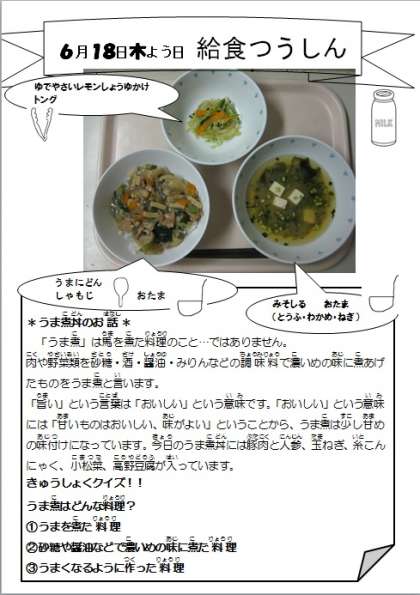 6月18日木よう日 給食つうしん
ゆでやさいレモンしょうゆかけ
トング
MILK
うまにどん
しゃもじ おたま
みそしる おたま
(とうふ・わかめ・ねぎ)
＊うま煮丼のお話＊
「うま煮」は馬を煮た料理のこと…ではありません。
肉や野菜類を砂糖・酒・醤油・みりんなどの調味料で濃いめの味に煮あげ
たものをうま煮と言います。
「旨い」という言葉は「おいしい」という意味です。「おいしい」という意味
には「甘いものはおいしい、味がよい」ということから、うま煮は少し甘め
の味付けになっています。今日のうま煮丼には豚肉と人参、玉ねぎ、糸こん
にゃく、小松菜、高野豆腐が入っています。
きゅうしょくクイズ！！
うま煮はどんな料理？
①うまを煮た料理
②砂糖や醤油などで濃いめの味に煮た料理
③うまくなるように作った料理